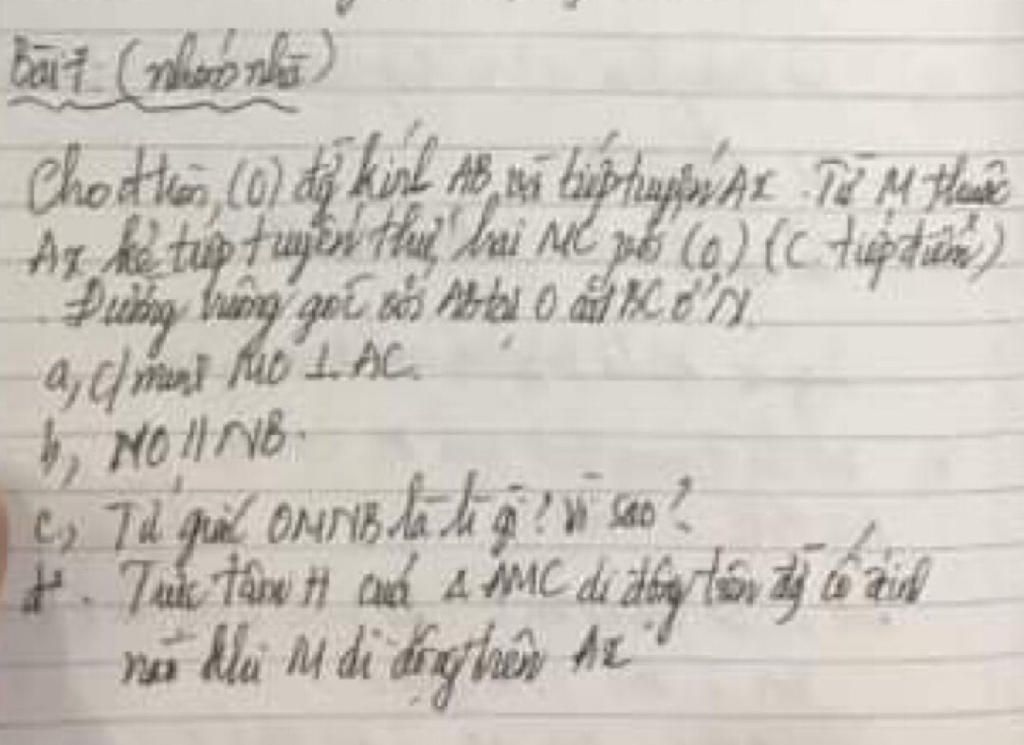 Bài 7 (nhóm nhà)
Cho đtròn (O) đg kính AB và tiếp tuyến Ax. Từ M thuộc
Ax kẻ tiếp tuyến thứ hai MC với (O) (C tiếp điểm)
. Đường vuông góc với AB tại O cắt BC ở N.
a, C/minh MO ⊥ AC.
b, MO // NB.
c, Tứ giác OMNB là h gì? Vì sao?
d. Trực tâm H của Δ AMC di động trên đg cố định
nào khi M di động trên Ax